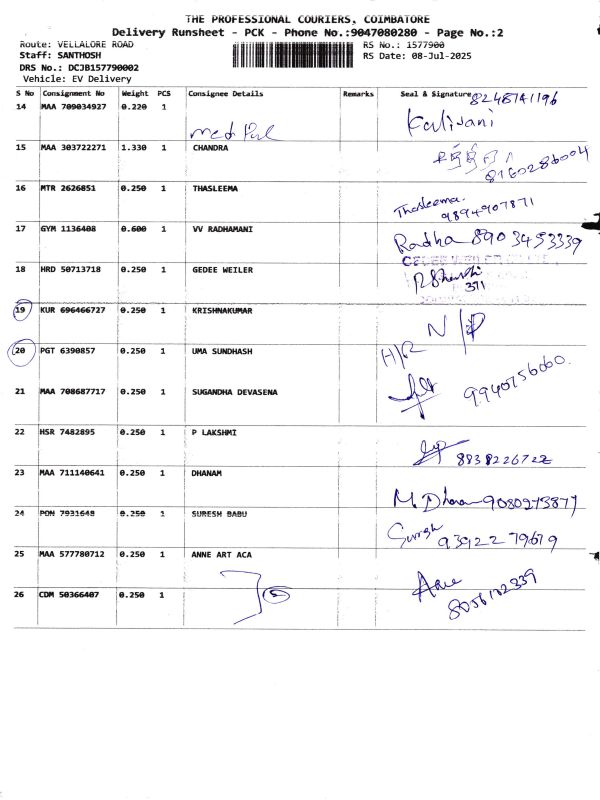 THE PROFESSIONAL COURIERS, COIMBATORE
Delivery Runsheet - PCK - Phone No.:9047080280 - Page No.:2
Route: VELLALORE ROAD
RS No.: 1577900
Staff: SANTHOSH
RS Date: 08-Jul-2025
DRS No.: DCJB157790002
Vehicle: EV Delivery
S No Consignment No Weight PCS Consignee Details Remarks Seal & Signature
8248741196
14 MAA 709034927 0.220 1
Kalivani
15 MAA 303722271 1.330 1 CHANDRA
8160286004
16 MTR 2626851 0.250 1 THASLEEMA
Thasleema.
9894907871
17 GYM 1136408 0.600 1 VV RADHAMANI
Radha 8903453339
18 HRD 50713718 0.250 1 GEDEE WEILER
371
19 KUR 696466727 0.250 1 KRISHNAKUMAR
N/P
20 PGT 6390857 0.250 1 UMA SUNDHASH
H/R
21 MAA 708687717 0.250 1 SUGANDHA DEVASENA
9940756060.
22 HSR 7482895 0.250 1 P LAKSHMI
8838226722
23 MAA 711140641 0.250 1 DHANAM
M. Dhanam 9080273877
24 PON 7931648 0.250 1 SURESH BABU
Suresh
9392279679
25 MAA 577780712 0.250 1 ANNE ART ACA
Anne
8056102339
26 CDM 50366407 0.250 1